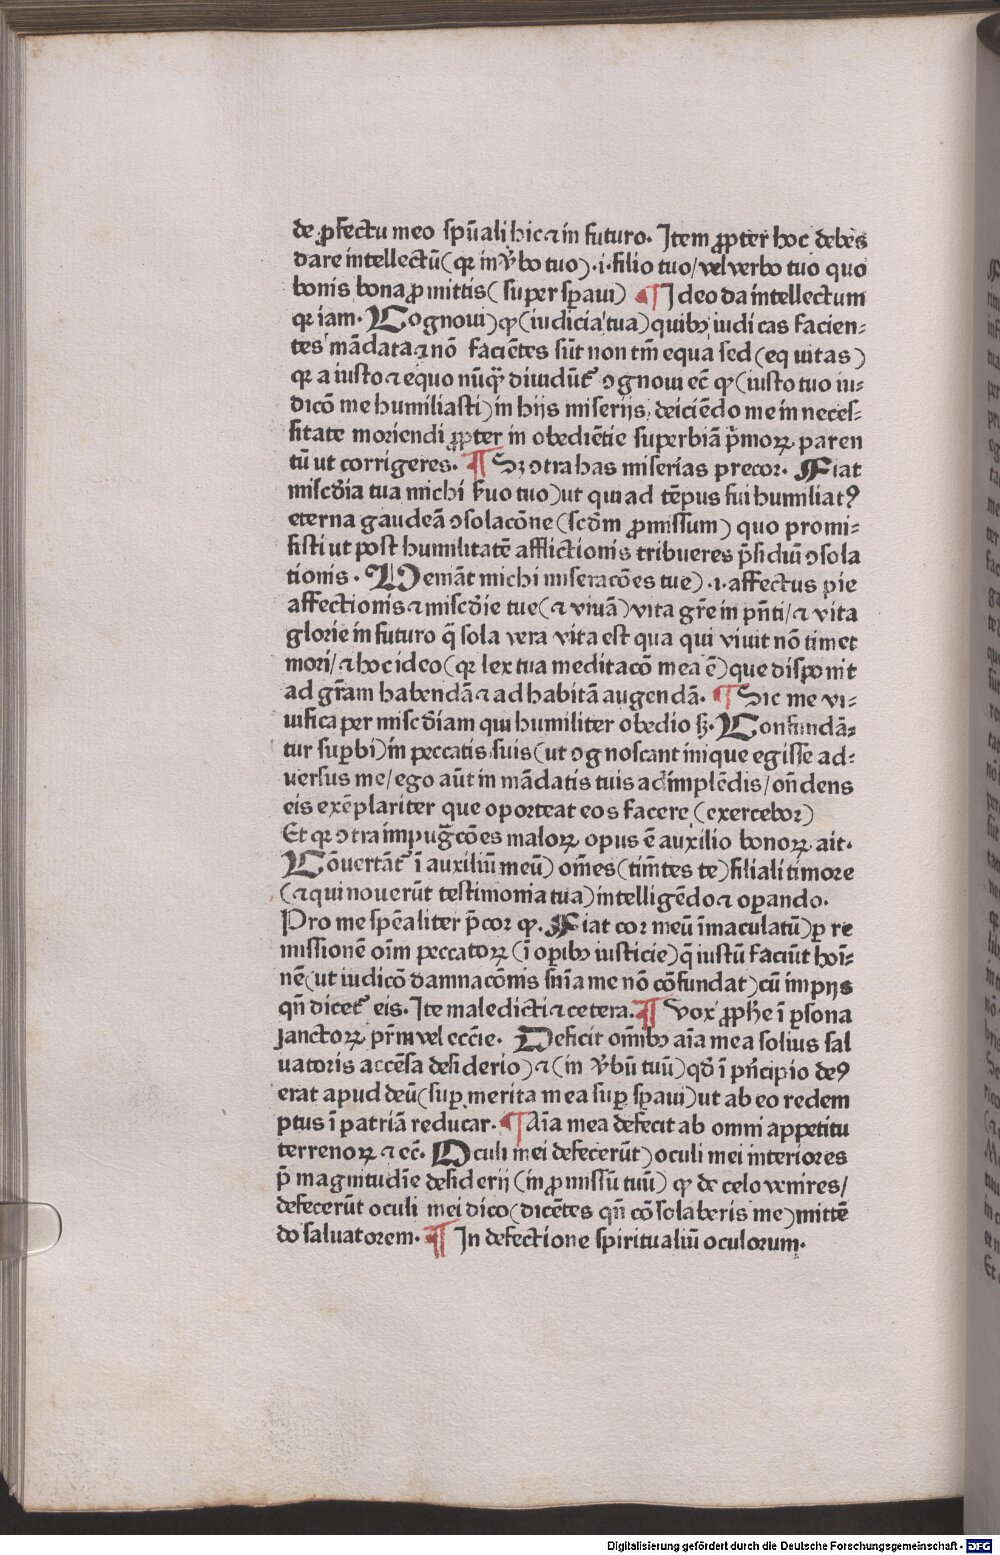 de ꝓfectu meo spũali hic ⁊ in futuro. Item ꝓpter hoc debes
dare intellectũ (qꝛ in ꝟbo tuo) .i. filio tuo / vel verbo tuo quo
bonis bona ꝓmittis (super sꝑaui) ¶ Ideo da intellectum
qꝛ iam. Cognoui) ꝙ (iudicia tua) quibꝫ iudicas facien⸗
tes mãdata ⁊ nõ faciẽtes sũt non tm̃ equa sed (equitas)
qꝛ a iusto ⁊ equo nũqꝫ diuidũt᷑ ꝯgnoui ec̃ ꝙ (iusto tuo iu⸗
dicõ me humiliasti) in hijs miserijs, deiciẽdo me in neces⸗
sitate moriendi ꝓpter in obediẽtie superbiã p̃moꝝ paren
tũ ut corrigeres. ¶ Sꝫ ꝯtra has miserias precor. Fiat
misc̃dia tua michi ẜuo tuo) ut qui ad tẽpus fui humiliatꝰ
eterna gaudeã ꝯsolacõne (scd̃m ꝓmissum) quo promi⸗
sisti ut post humilitatẽ afflictionis tribueres p̃sidiũ ꝯsola
tionis. Veniãt michi miseracões tue) .i. affectus pie
affectionis ⁊ misc̃die tue (⁊ viuã) vita gr̃e in pñti / ⁊ vita
glorie in futuro q̃ sola vera vita est qua qui viuit nõ timet
mori / ⁊ hoc ideo (qꝛ lex tua meditacõ mea ẽ) que disponit
ad gr̃am habendã ⁊ ad habitã augendã. ¶ Sic me vi⸗
uifica per misc̃diam qui humiliter obedio sꝫ. Confundã⸗
tur suꝑbi) in peccatis suis (ut ꝯgnoscant inique egisse ad⸗
versus me / ego aũt in mãdatis tuis adimplẽdis / oñdens
eis exẽplariter que oporteat eos facere (exercebor)
Et qꝛ ꝯtra impug̃cões maloꝝ opus ẽ auxilio bonoꝝ ait.
Cõuertãt᷑ ĩ auxiliũ meũ) om̃es (tim̃tes te) filiali timore
(⁊ qui nouerũt testimonia tua) intelligẽdo ⁊ oꝑando.
Pro me spẽaliter p̃cor ꝙ. Fiat cor meũ ĩmaculatũ) ꝑ re
missionẽ oĩm peccatoꝝ (ĩ oꝑibꝫ iusticie) q̃ iustũ faciũt hoĩ⸗
nẽ (ut iudicõ damnacõnis sñia me nõ cõfundat) cũ impijs
qñ dicet᷑ eis. Ite maledicti ⁊ cetera. ¶ Vox ꝓph̃e ĩ ꝑsona
sanctoꝝ pr̃m vel ecc̃ie. Deficit om̃ibꝫ aĩa mea solius sal
uatoris accẽsa desiderio) ⁊ (in ꝟbũ tuũ) qd̃ ĩ pñcipio deꝰ
erat apud deũ (suꝑ merita mea suꝑ sꝑaui) ut ab eo redem
ptus ĩ patriã reducar. ¶ Aĩa mea defecit ab omni appetitu
terrenoꝝ ⁊ ec̃. Oculi mei defecerũt) oculi mei interiores
p̃ magnitudĩe desiderij (in ꝓmissũ tuũ) ꝙ de celo venires /
defecerũt oculi mei dico (dicẽtes qñ cõsolaberis me) mittẽ
do saluatorem. ¶ In defectione spiritualiũ oculorum.
Digitalisierung gefördert durch die Deutsche Forschungsgemeinschaft - DFG